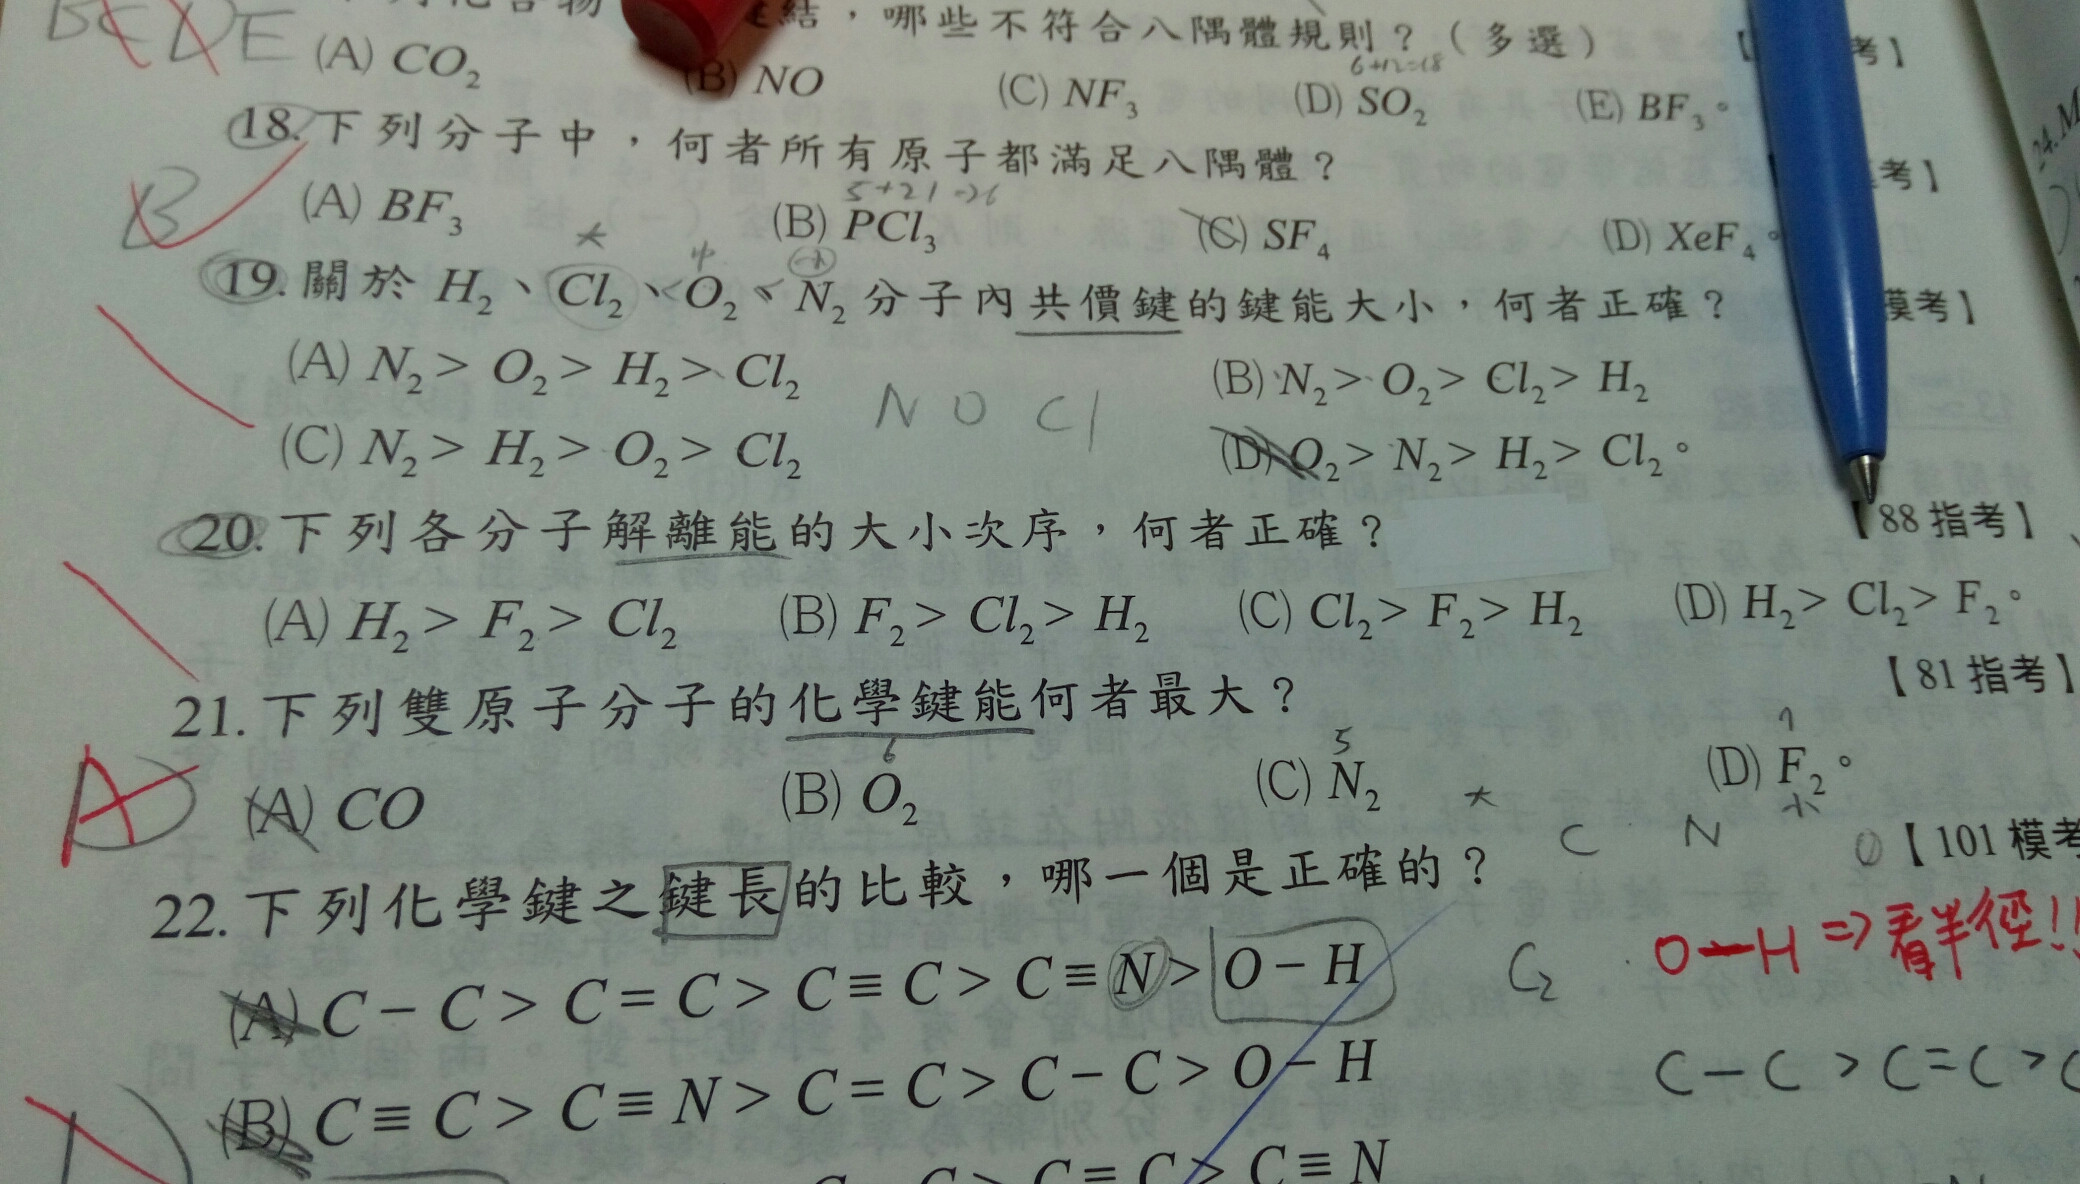 結，哪些不符合八隅體規則？（多選）
考】
BCDE
(A) CO₂ (B) NO (C) NF₃ (D) SO₂ (E) BF₃。
6+12=18
18. 下列分子中，何者所有原子都滿足八隅體？
考】
B
(A) BF₃ (B) PCl₃ (C) SF₄ (D) XeF₄。
5+21→26
19. 關於 H₂、Cl₂、O₂、N₂ 分子內共價鍵的鍵能大小，何者正確？
模考】
(A) N₂ > O₂ > H₂ > Cl₂ (B) N₂ > O₂ > Cl₂ > H₂
N O Cl
(C) N₂ > H₂ > O₂ > Cl₂ (D) O₂ > N₂ > H₂ > Cl₂。
20. 下列各分子解離能的大小次序，何者正確？
【88 指考】
(A) H₂ > F₂ > Cl₂ (B) F₂ > Cl₂ > H₂ (C) Cl₂ > F₂ > H₂ (D) H₂ > Cl₂ > F₂。
21. 下列雙原子分子的化學鍵能何者最大？
【81 指考】
6 5 7
A
(A) CO (B) O₂ (C) N₂ (D) F₂。
小
C N O
22. 下列化學鍵之鍵長的比較，哪一個是正確的？
【101 模考
(A) C－C > C＝C > C≡C > C≡N > O－H
C₂
O－H ⇒ 看半徑!!
(B) C≡C > C≡N > C＝C > C－C > O－H
C－C > C=C > C
C > C＝C > C≡N
24.